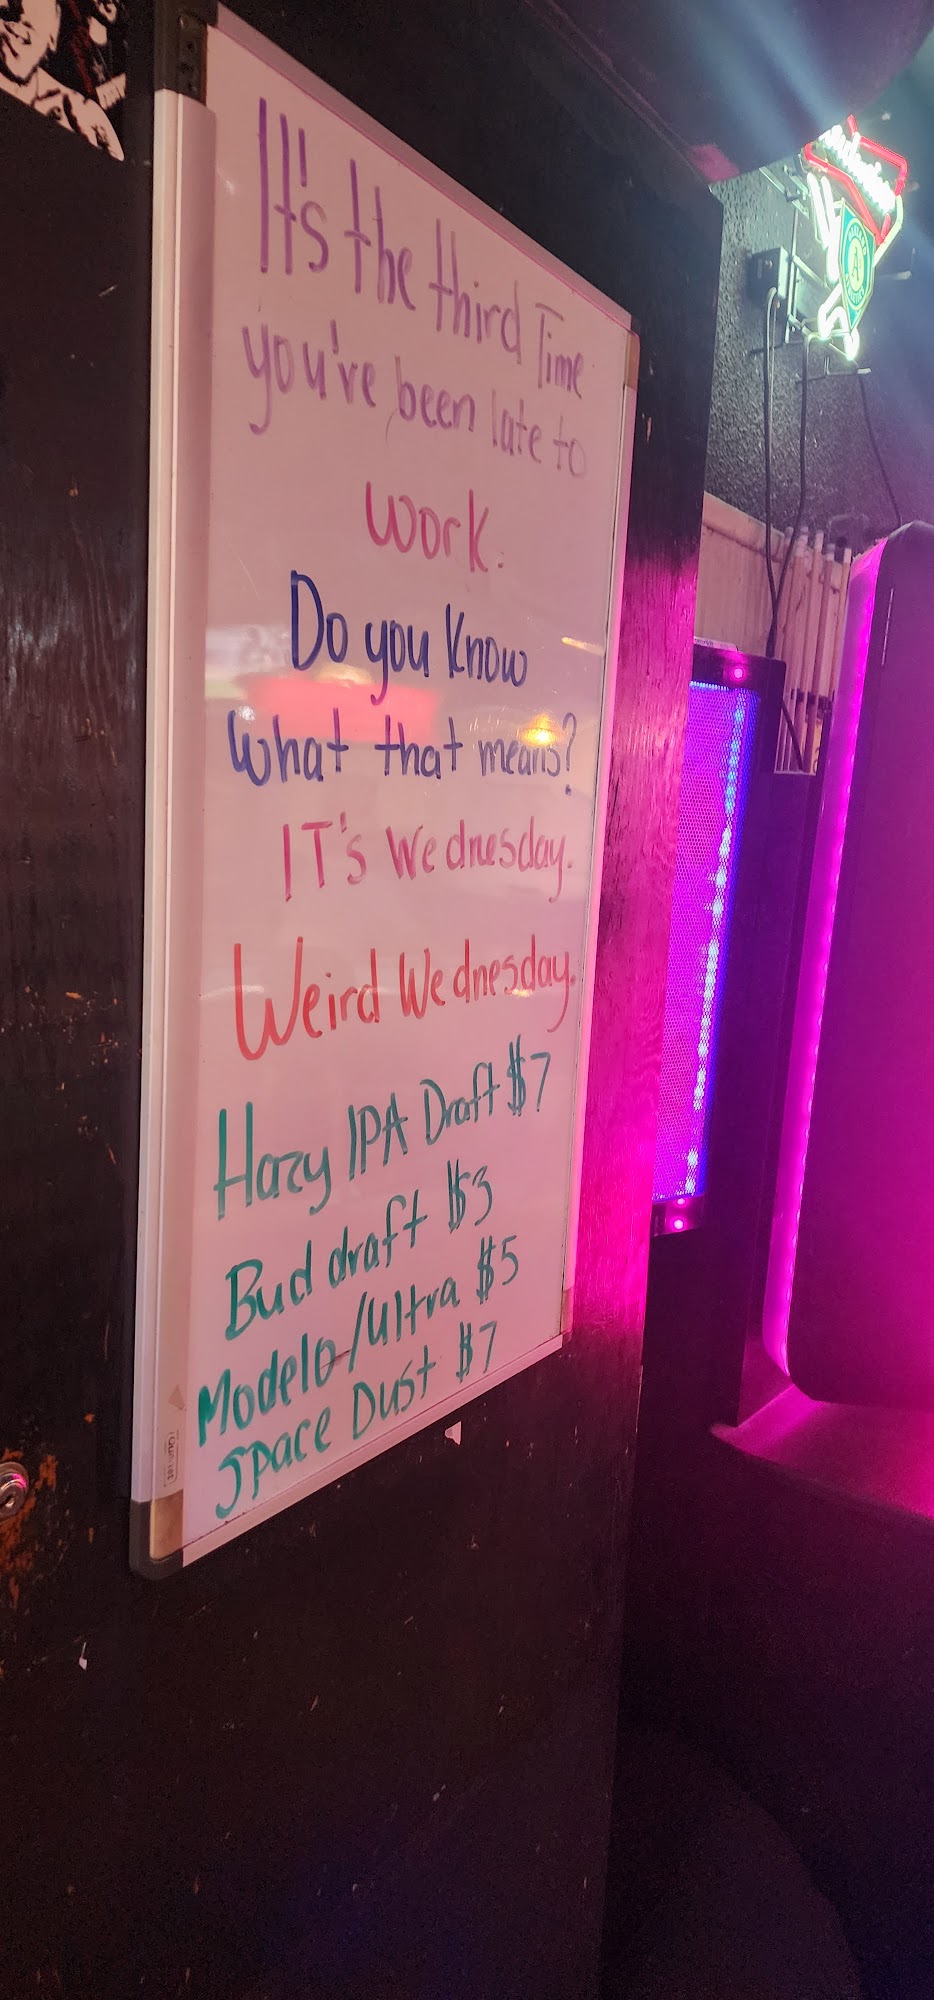 It's the third Time
you've been late to
work.
Do you know
what that means?
IT's Wednesday.
Weird Wednesday.
Hazy IPA Draft $7
Bud draft $3
Modelo/Ultra $5
Space Dust $7
Quartet